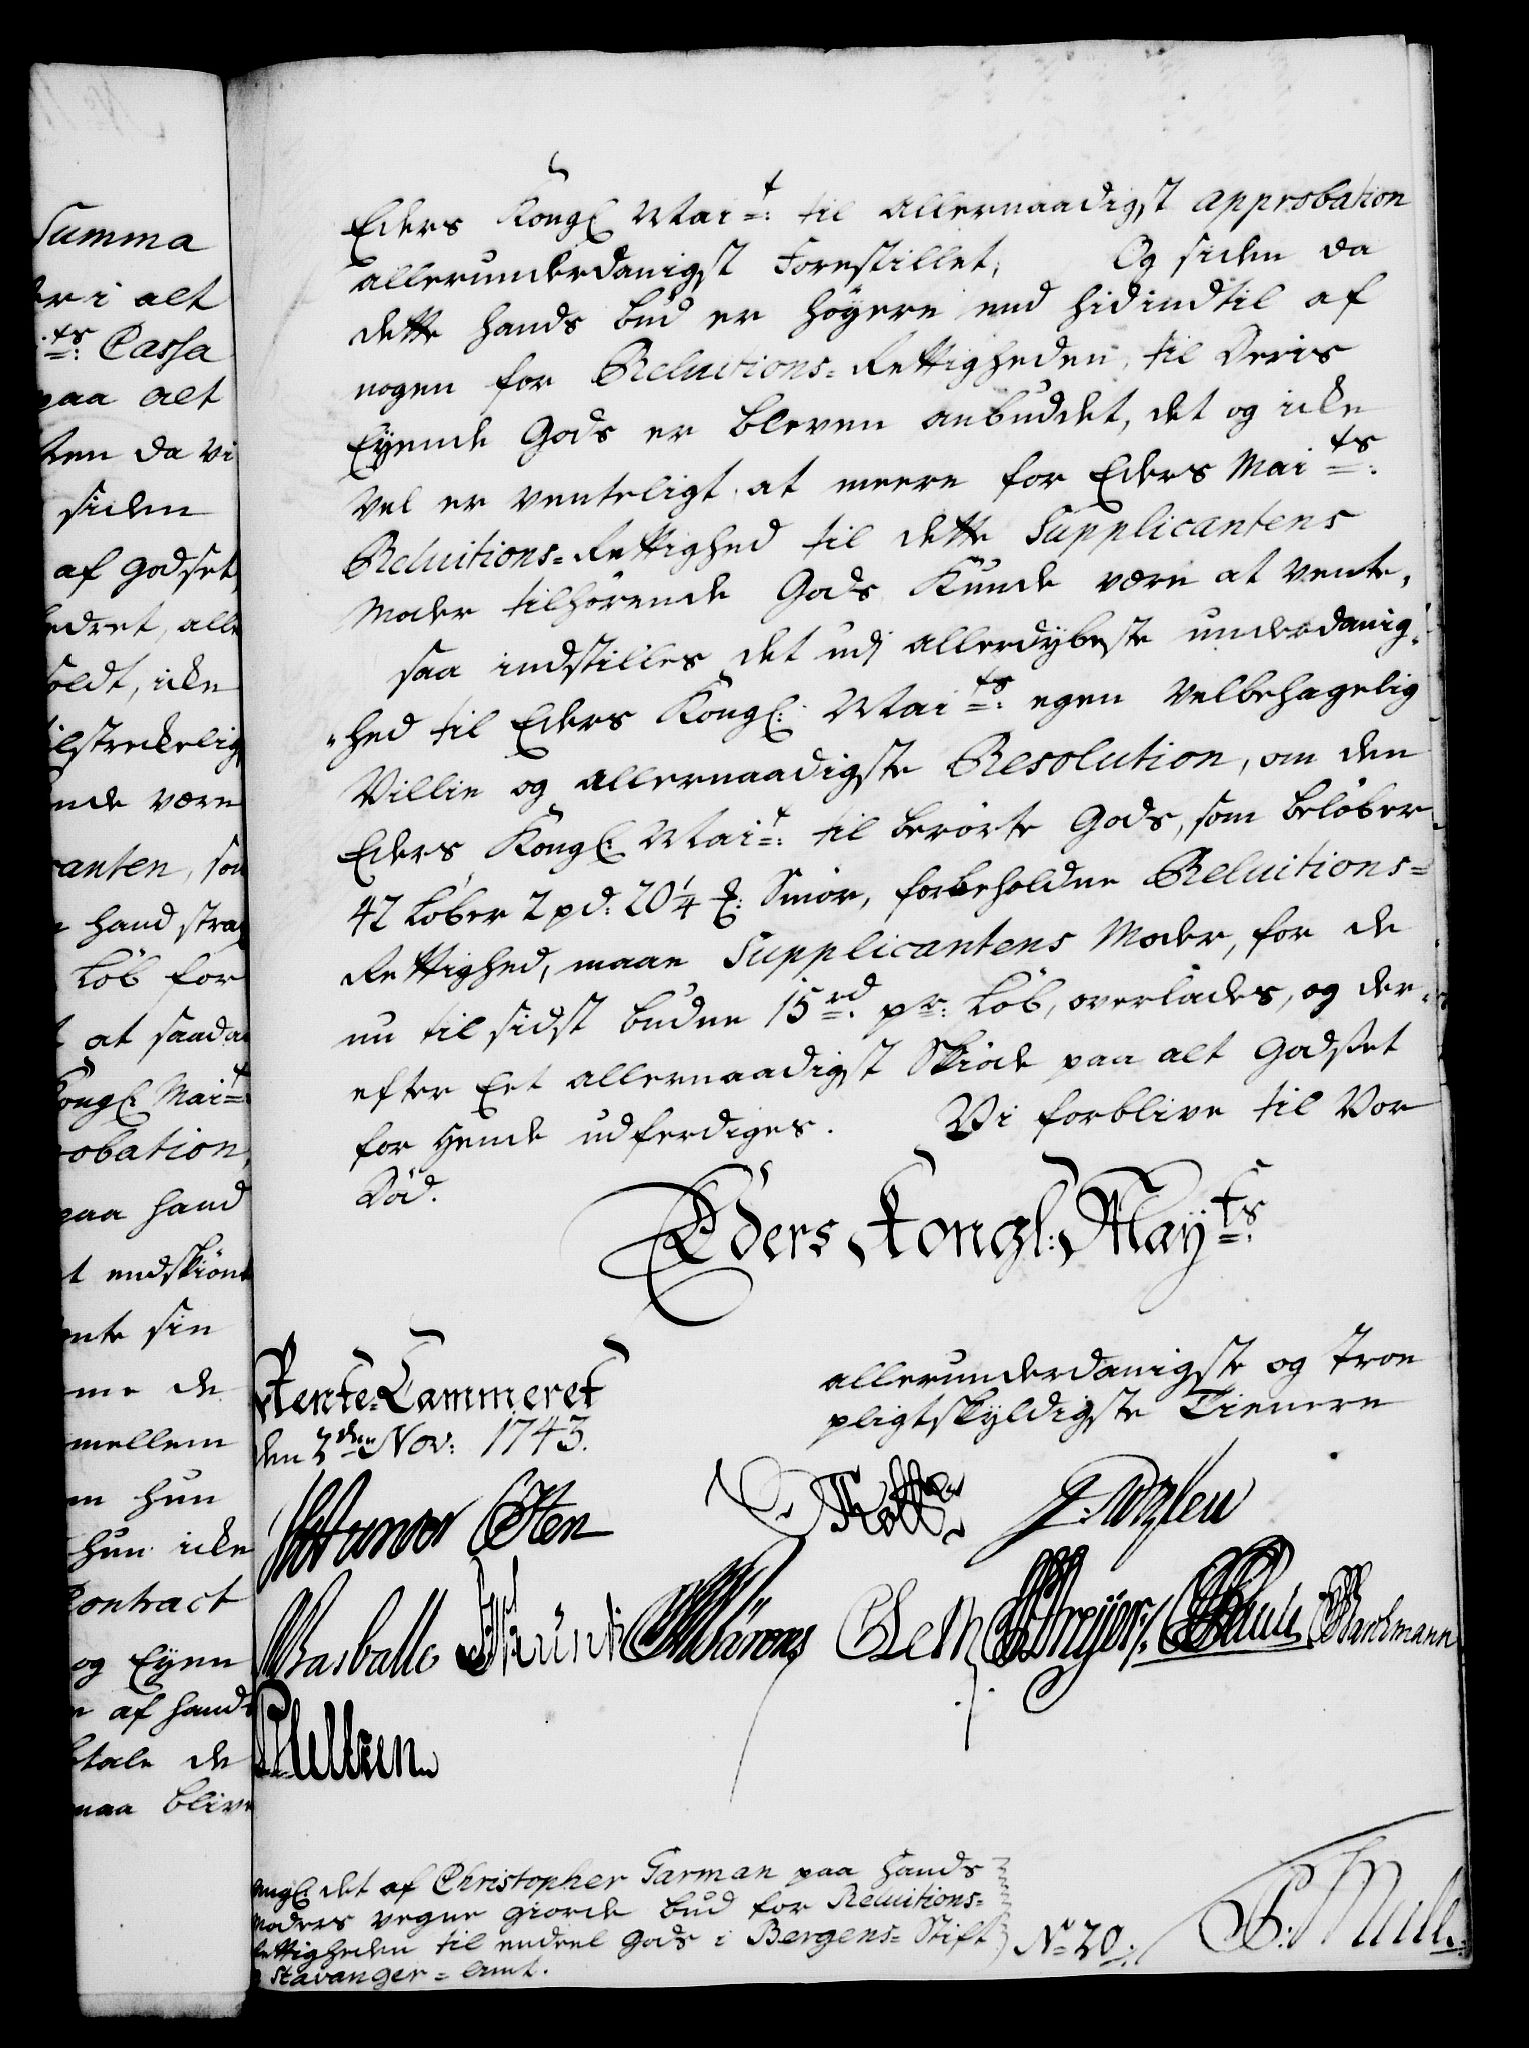 Summa
er i alt
ts: Cassa
paa alt
ten da vi
siden
af godset,
bedret, alle
soldt, icke
ilstreckelig
unde være
canten, som
hand strax
Løb for
at saadan
Kongl: Mait:
robation,
paa hand
t endskiønt
ente sin
me de
mellem
hun
hun icke
Contract
og Eyen
af hands
tale de
maa blive
Eders Kongl Mait: til allernaadigst approbation
allerunderdanigst Forestillet; Og siden da
dette hands bud er høyere end hidindtil af
nogen for Reluitions-Rettigheden til Deris
Eyende Gods er bleven anbuddet, det og icke
vel er venteligt, at meere for Eders Maits:
Reluitions-Rettighed til dette Supplicantens
Moder tilhørende Gods kunde være at vente,
saa indstilles det udj allerdybeste underdanig-
hed til Eders Kongl: Maits: egen velbehagelig
Villie og allernaadigste Resolution, om den
Eders Kongl: Mait: til berørte Gods, som beløber
42 Løber 2 pd: 20 1/4 ℔: Smør, forbeholdne Reluitions-
Rettighed, maae Supplicantens Moder, for de
nu til sidst budne 15 rd. pr: Løb, overlades, og der-
efter Eet allernaadigst Skiøde paa alt Godset
for Hende udferdiges. Vi forblive til Vor
Død.
Eders Kongl: Mayts:
Rente-Cammeret
den 2den Nov: 1743.
allerunderdanigste og troe
pligtskyldigste Tienere
Otten
Basballe
Dreyer
Bachmann
ang: det af Christopher Garman paa hands
Moders vegne giorde bud for Reluitions-
Rettigheden til endeel Gods i Bergens-Stift
Stavanger-Amt.
No 20.